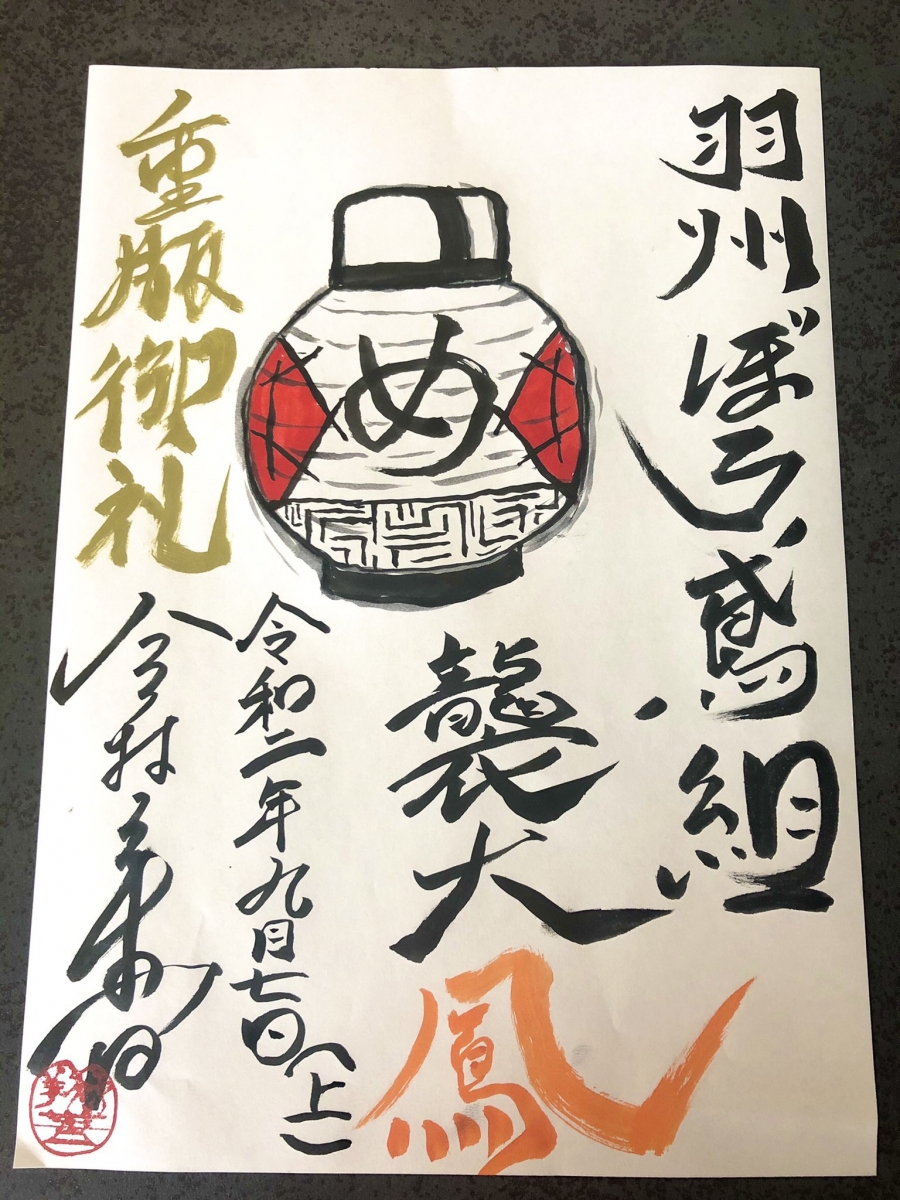 羽州ぼろ鳶組
め
襲大鳳
（上）
令和二年九月七日
重版御礼
今村翔吾